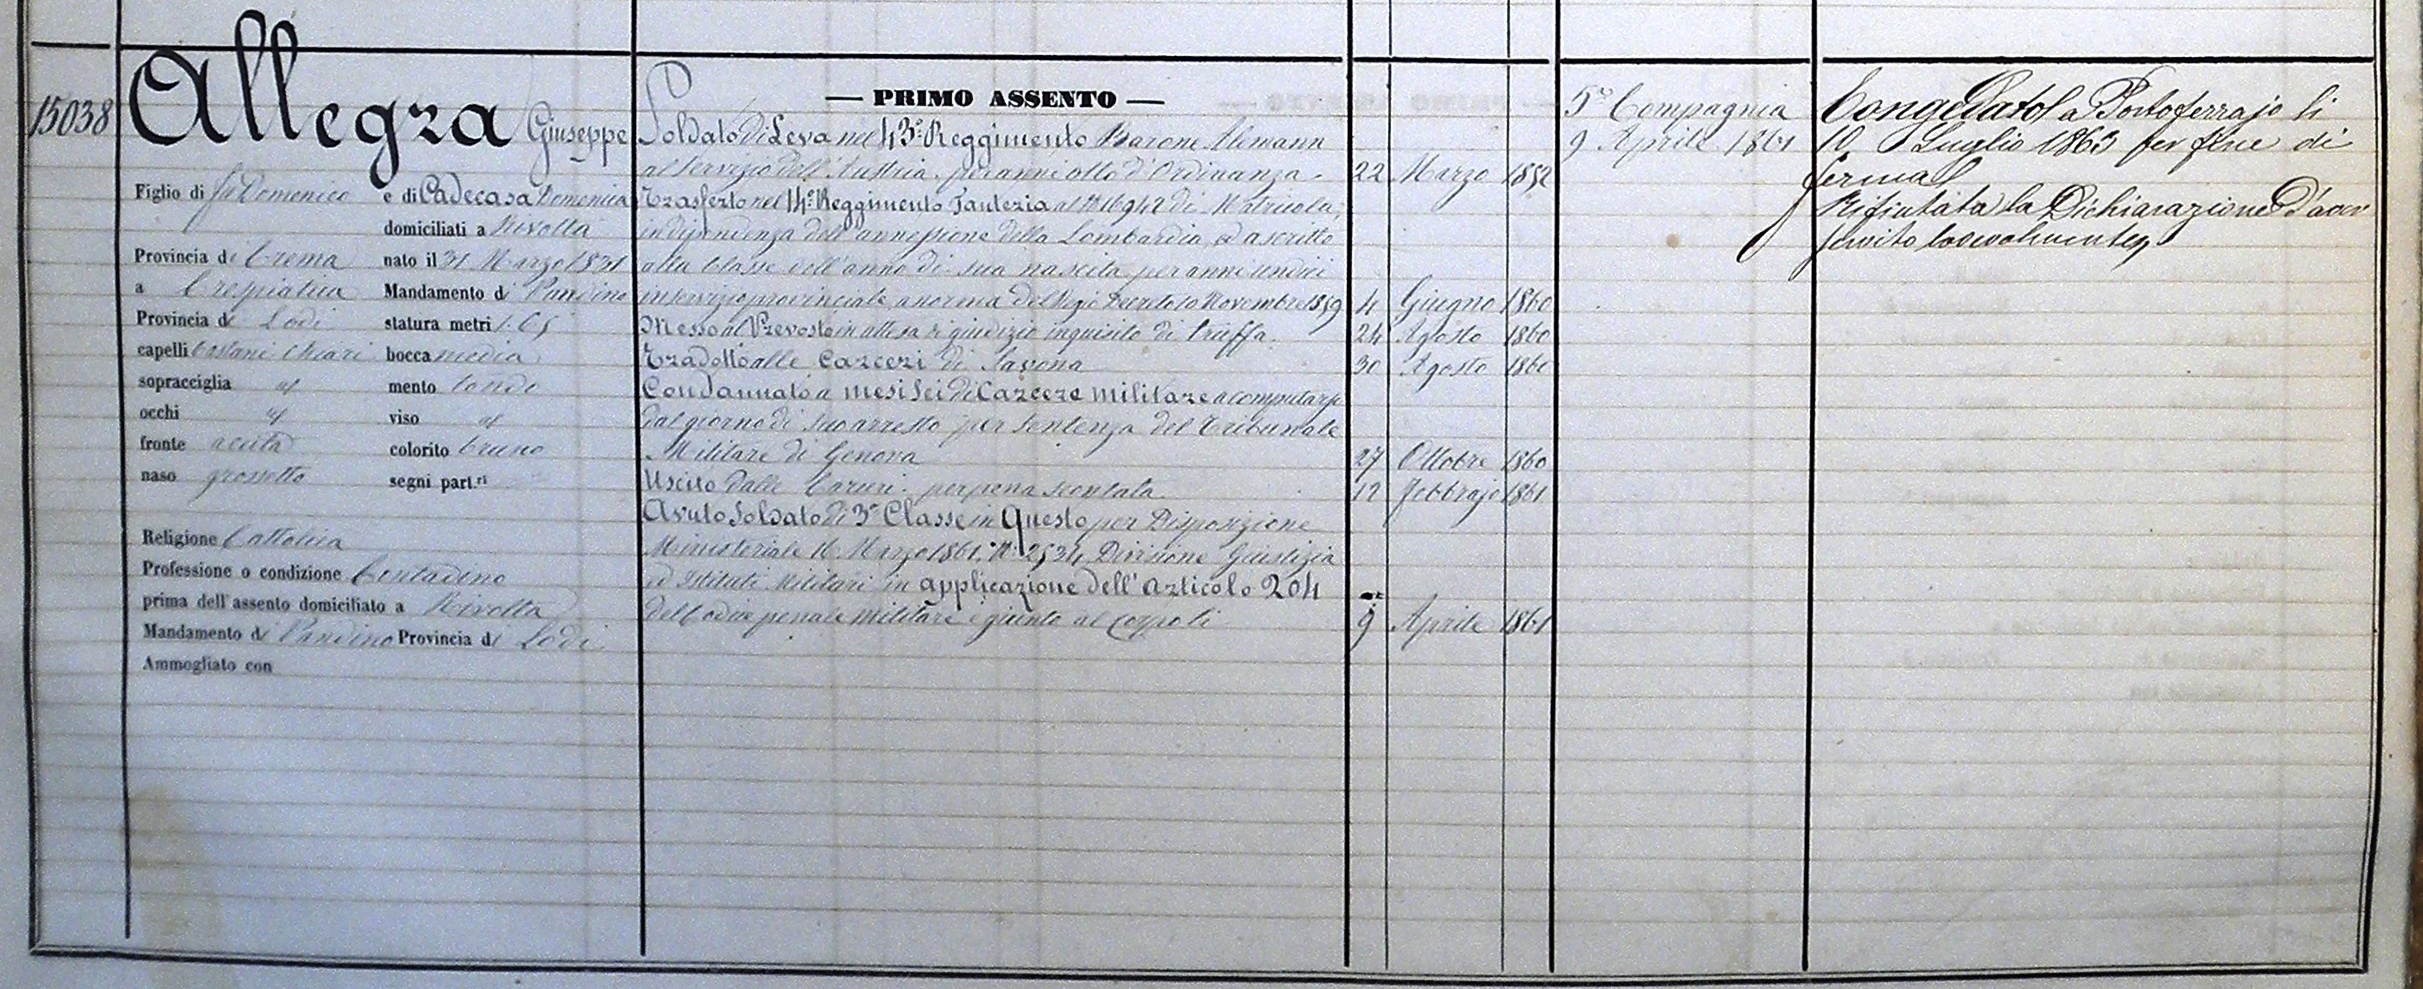 15038
Allegra Giuseppe
Figlio di fu Domenico e di Cadecasa Domenica
domiciliati a Rivolta
Provincia di Crema nato il 31 Marzo 1831
a Crespiatica Mandamento di Pandino
Provincia di Lodi statura metri 1.65
capelli Castani Chiari bocca media
sopracciglia id mento tondo
occhi id viso id
fronte acuta colorito bruno
naso grossetto segni part.ri
Religione Cattolica
Professione o condizione Contadino
prima dell'assento domiciliato a Rivolta
Mandamento di Pandino Provincia di Lodi
Ammogliato con
— PRIMO ASSENTO —
Soldato di Leva nel 43° Reggimento Barone Alemann
al servizio dell'Austria per anni otto d'Ordinanza. 22 Marzo 1852
Trasferto nel 14° Reggimento Fanteria al N° 16942 di Matricola,
in dipendenza dell'annessione della Lombardia, ed ascritto
alla Classe dell'anno di sua nascita per anni undici
in servizio provinciale a norma del Regio Decreto 10 Novembre 1859 4 Giugno 1860
Messo al Prevosto in attesa di giudizio inquisito di Truffa. 24 Agosto 1860
Tradotto alle Carceri di Savona 30 Agosto 1860
Condannato a mesi sei di Carcere militare a computarsi
dal giorno di suo arresto per sentenza del Tribunale
Militare di Genova 27 Ottobre 1860
Uscito dalle Carceri per pena scontata 12 Febbrajo 1861
Avuto Soldato di 3a Classe in Questo per Disposizione
Ministeriale 16 Marzo 1861. N° 2534, Divisione Giustizia
ed Istituti Militari in applicazione dell'articolo 204
del Codice penale militare e giunto al Corpo li 9 Aprile 1861
5a Compagnia
9 Aprile 1861
Congedato a Portoferrajo li
10 Luglio 1863 per fine di
ferma
Rifiutata la Dichiarazione d'aver
servito lodevolmente